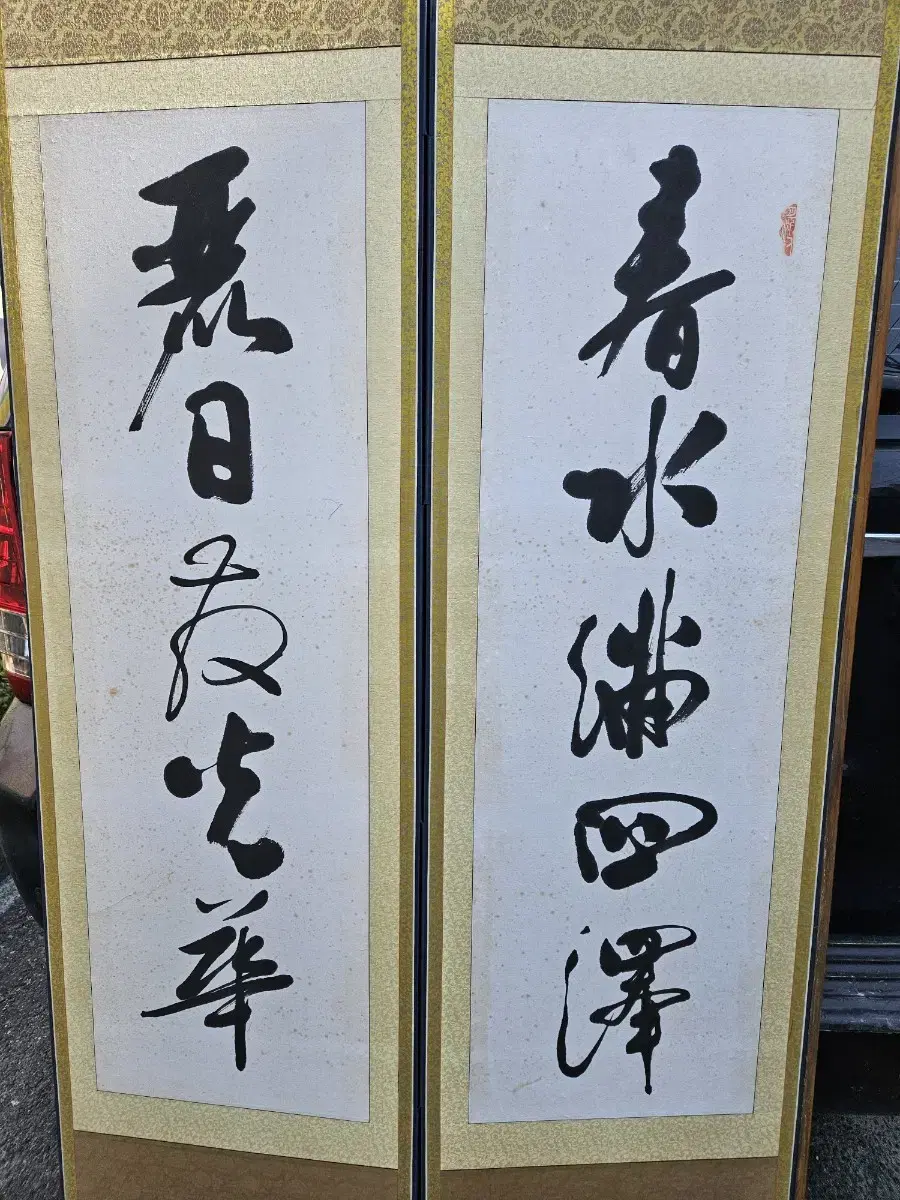 春水滿四澤
麗日發光華